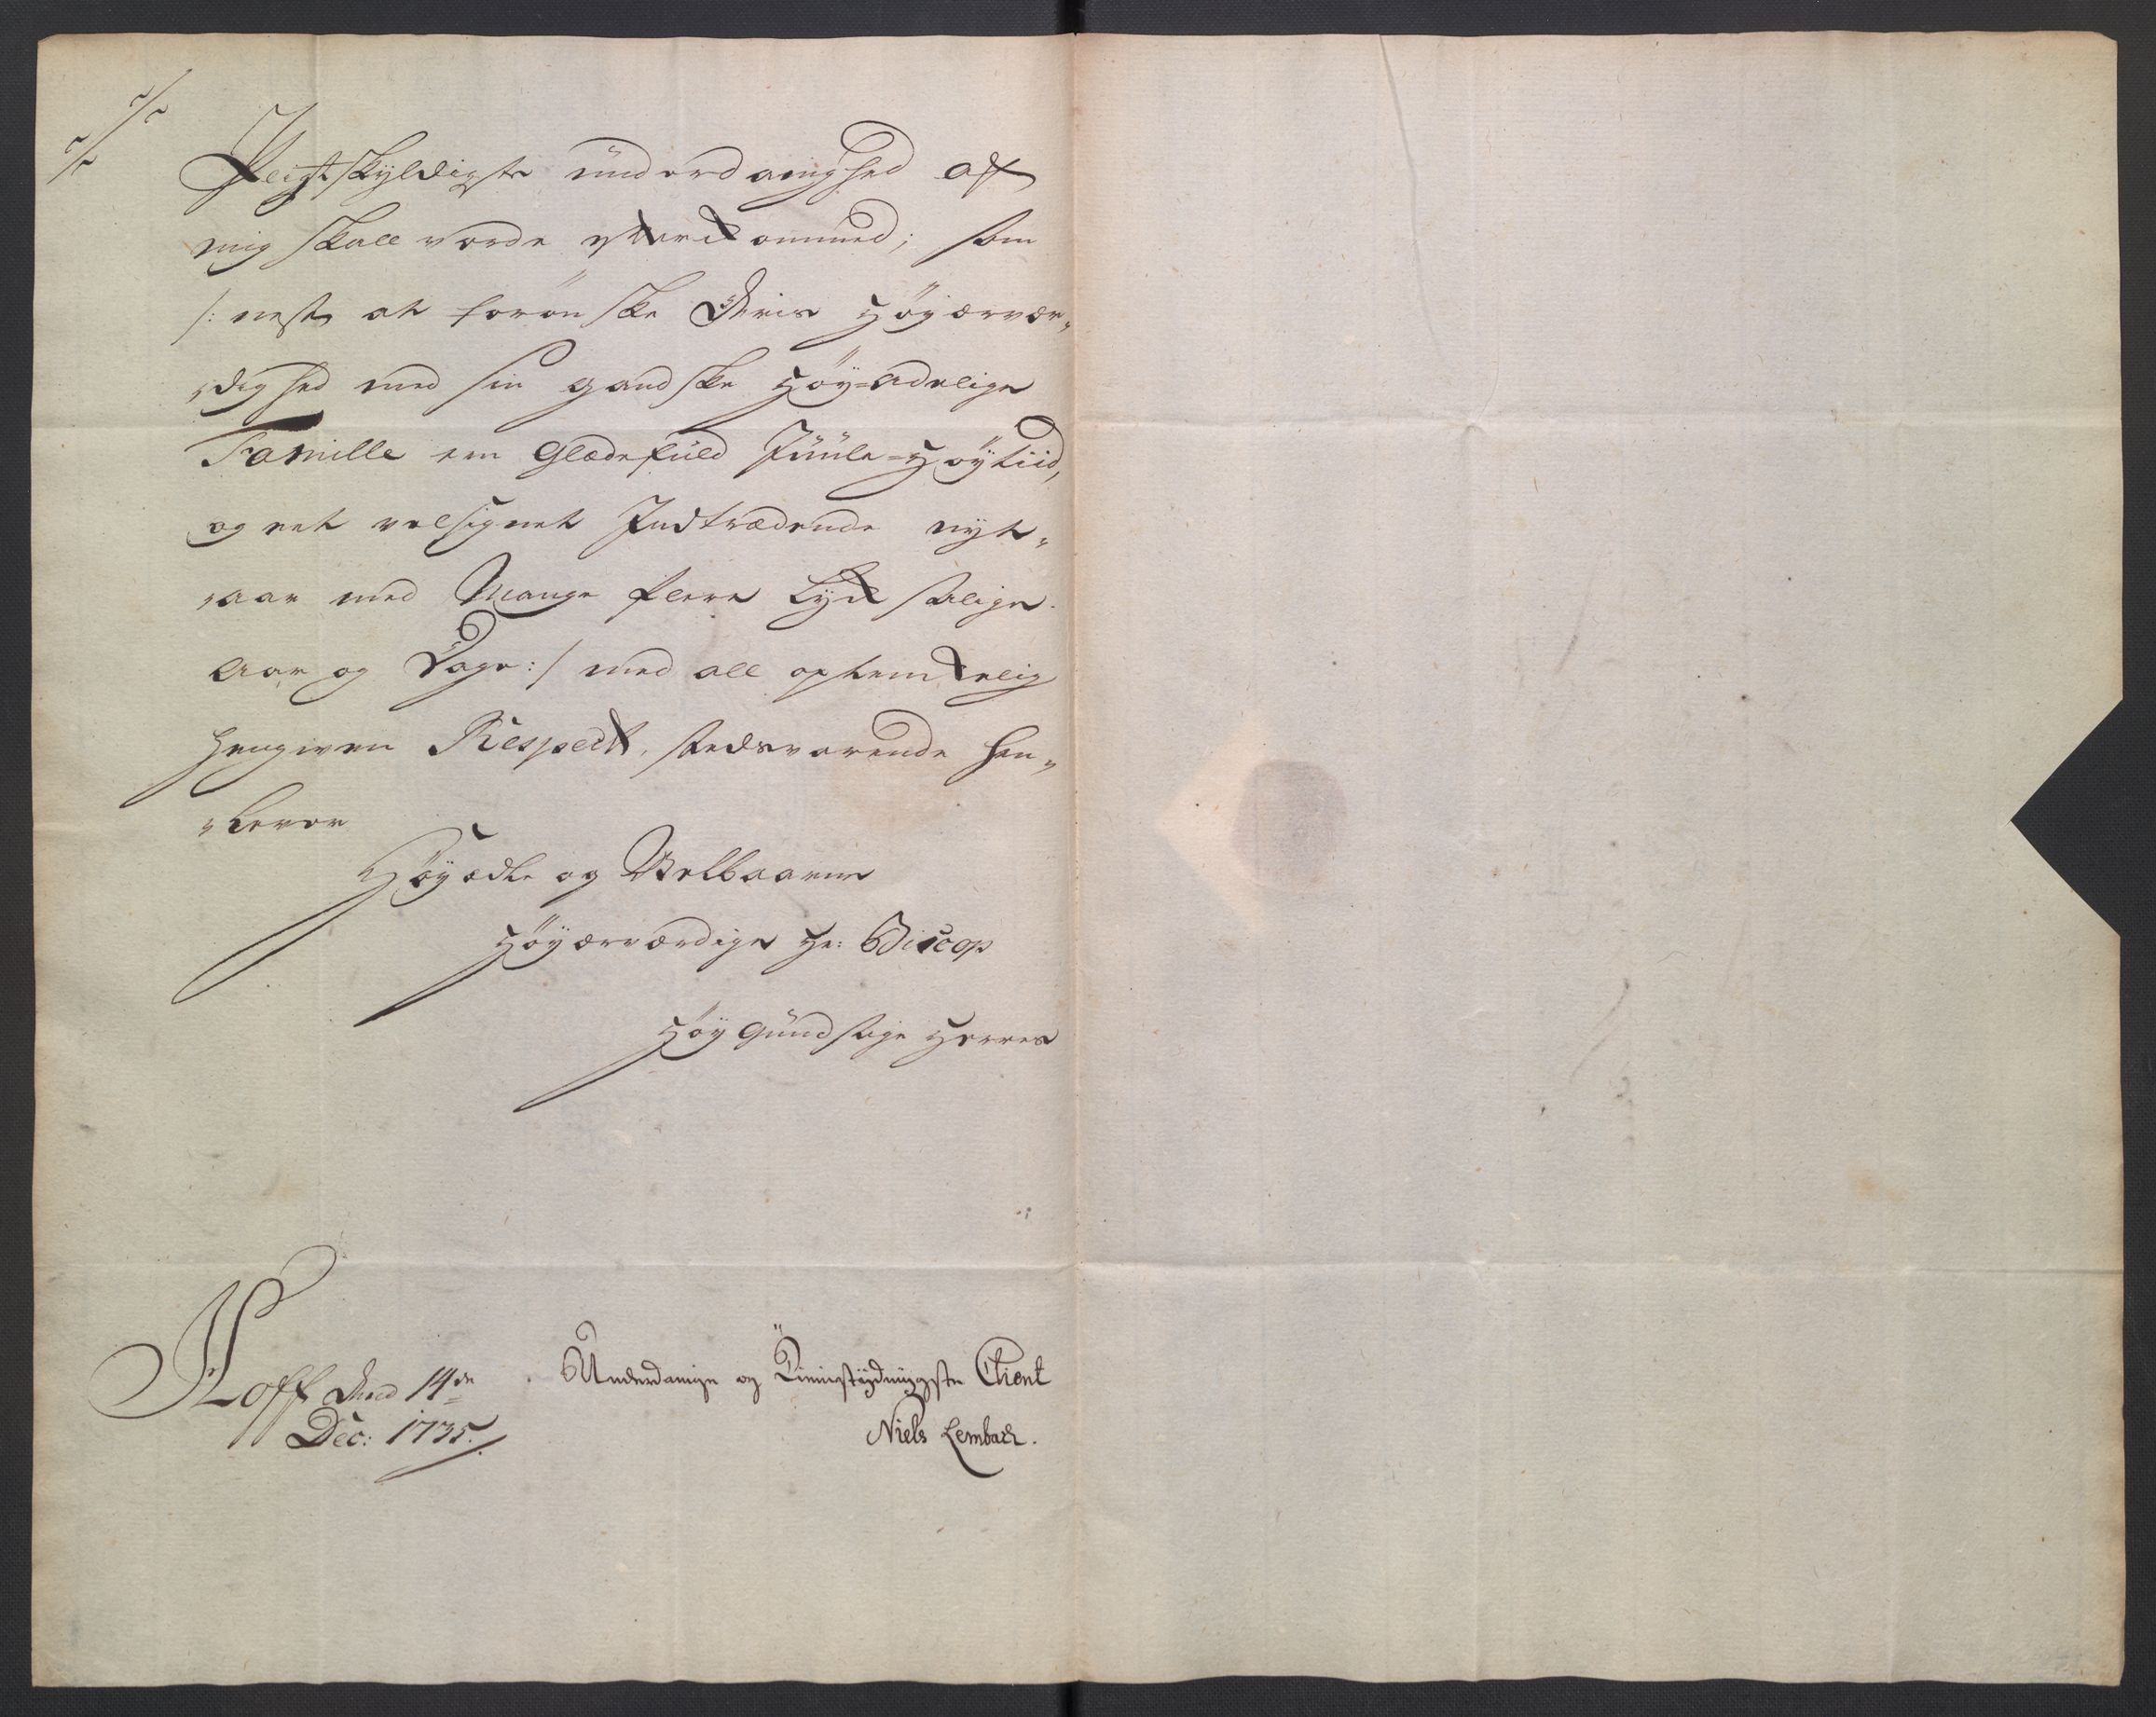 Pligtskyldigste underdanighed af
mig skall vorde efterkommed; som
/: nest at forönske Deris Höyærvær„
„dighed med sin gandske Höy=adelige
Famille een Glædefuld Juule=Höytiid,
og eet velsignet Indtrædende nyt„
„aar med Mange flere Lyksalige
Aar og Dage :/ med all optenkelig
hengiven Respect, stedsevarende hen„
„lever
Höyædle og Velbaarne
Höyærværdige Hr: Biscop
Höygunstige Herres
Hoff Dend 14de
Dec: 1735.
Underdanige og Tienistydmygste Client
Niels Lembach.